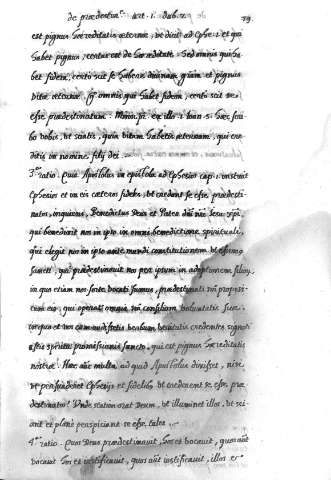 de prædestinatᵉ. art. 1. dub. 2. 79.
est pignus hæreditatis æternæ, ut dicit ad Ephes. 1. et qui
habet pignus, certus est de hæreditate. Sed omnis qui ha-
bet fidem, certo scit se habere divinam grãm, et pignus
vitæ æternæ. ergo omnis qui habet fidem, certo scit se
esse prædestinatum. Minor ex illo. 1. Ioan. 5. Hæc scri-
bo vobis, ut sciatis, quia vitam habetis æternam, qui cre-
ditis in nomine filij dei.
3ª. ratio. Quia Apostolus in epistola ad Ephesios cap. 1. instruit
Ephesios et cæteros fideles, ut credant se esse prædesti-
natos, inquiens, Benedictus Deus et Pater dñi nri Iesu xpi,
qui benedixit nos in ipso in omni benedictione spirituali,
qui elegit nos in ipso ante mundi constitutionem ut essemus
sancti, qui prædestinavit nos per ipsum in adoptionem filiorum,
in quo etiam nos sorte vocati sumus, prædestinati secundum proposi-
tum eius, qui operatur omnia secundum consilium voluntatis suæ.
in quo et vos cum audissetis verbum veritatis credentes signati
estis spiritu promissionis sancto, qui est pignus hæreditatis
nostræ. Hæc autem multa ad quid Apostolus dixisset, nisi
ut persuaderet Ephesijs et fidelibus ut crederent se esse præ-
destinatos? Unde statim orat Deum, ut illuminet illos, ut sci-
ant et plane perspiciant se esse tales.
4ª. ratio. Quos Deus prædestinavit, hos et vocavit, quos aut
vocavit hos et iustificavit, quos aut iustificavit, illos et